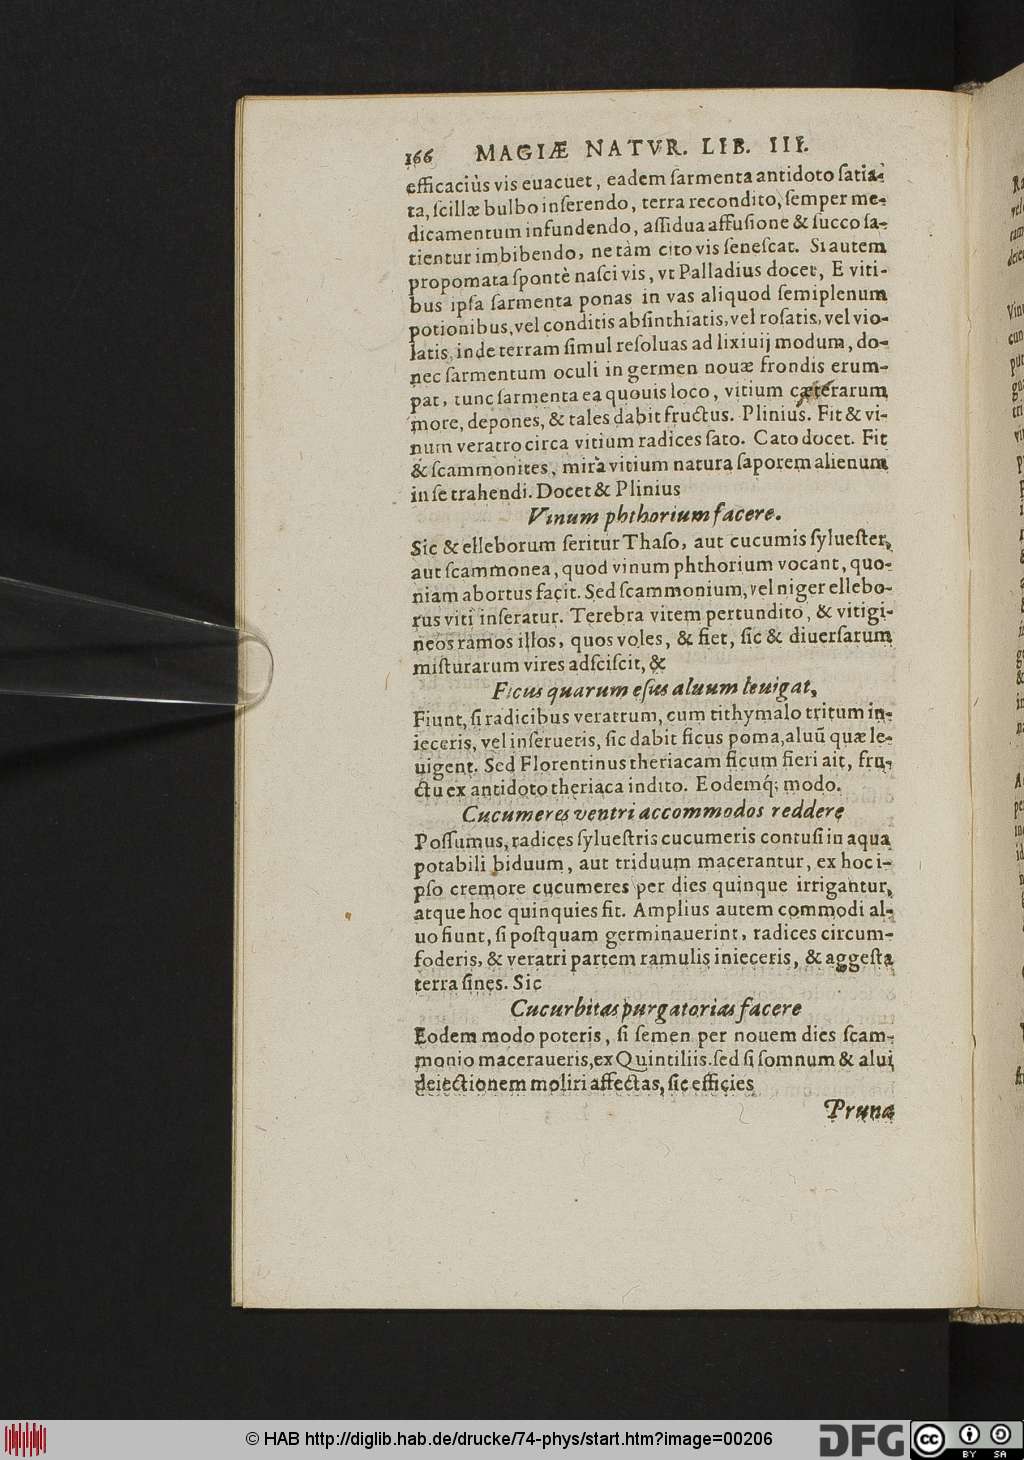 166 MAGIÆ NATVR. LIB. III.
efficaciùs vis euacuet, eadem ſarmenta antidoto ſatia-
ta, ſcillæ bulbo inſerendo, terra recondito, ſemper me-
dicamentum infundendo, aſſidua affuſione & ſucco ſa-
tientur imbibendo, ne tàm cito vis ſeneſcat. Si autem
propomata ſpontè naſci vis, vt Palladius docet, E viti-
bus ipſa ſarmenta ponas in vas aliquod ſemiplenum
potionibus, vel conditis abſinthiatis, vel roſatis, vel vio-
latis, inde terram ſimul reſoluas ad lixiuij modum, do-
nec ſarmentum oculi in germen nouæ frondis erum-
pat, tunc ſarmenta ea quouis loco, vitium cæterarum
more, depones, & tales dabit fructus. Plinius. Fit & vi-
num veratro circa vitium radices ſato. Cato docet. Fit
& ſcammonites, mira vitium natura ſaporem alienum
in ſe trahendi. Docet & Plinius
Vinum phthorium facere.
Sic & elleborum ſeritur Thaſo, aut cucumis ſylueſter,
aut ſcammonea, quod vinum phthorium vocant, quo-
niam abortus facit. Sed ſcammonium, vel niger ellebo-
rus viti inſeratur. Terebra vitem pertundito, & vitigi-
neos ramos illos, quos voles, & fiet, ſic & diuerſarum
miſturarum vires adſciſcit, &
Ficus quarum eſus aluum leuigat,
Fiunt, ſi radicibus veratrum, cum tithymalo tritum in-
ieceris, vel inſerueris, ſic dabit ficus poma, aluũ quæ le-
uigent. Sed Florentinus theriacam ficum fieri ait, fru-
ctu ex antidoto theriaca indito. Eodemq́; modo.
Cucumeres ventri accommodos reddere
Poſſumus, radices ſylueſtris cucumeris contuſi in aqua
potabili biduum, aut triduum macerantur, ex hoc i-
pſo cremore cucumeres per dies quinque irrigantur,
atque hoc quinquies fit. Amplius autem commodi al-
uo fiunt, ſi poſtquam germinauerint, radices circum-
foderis, & veratri partem ramulis inieceris, & aggeſta
terra ſines. Sic
Cucurbitas purgatorias facere
Eodem modo poteris, ſi ſemen per nouem dies ſcam-
monio maceraueris, ex Quintiliis. ſed ſi ſomnum & alui
deiectionem moliri affectas, ſic efficies
Pruna
© HAB http://diglib.hab.de/drucke/74-phys/start.htm?image=00206
DFG
cc BY SA